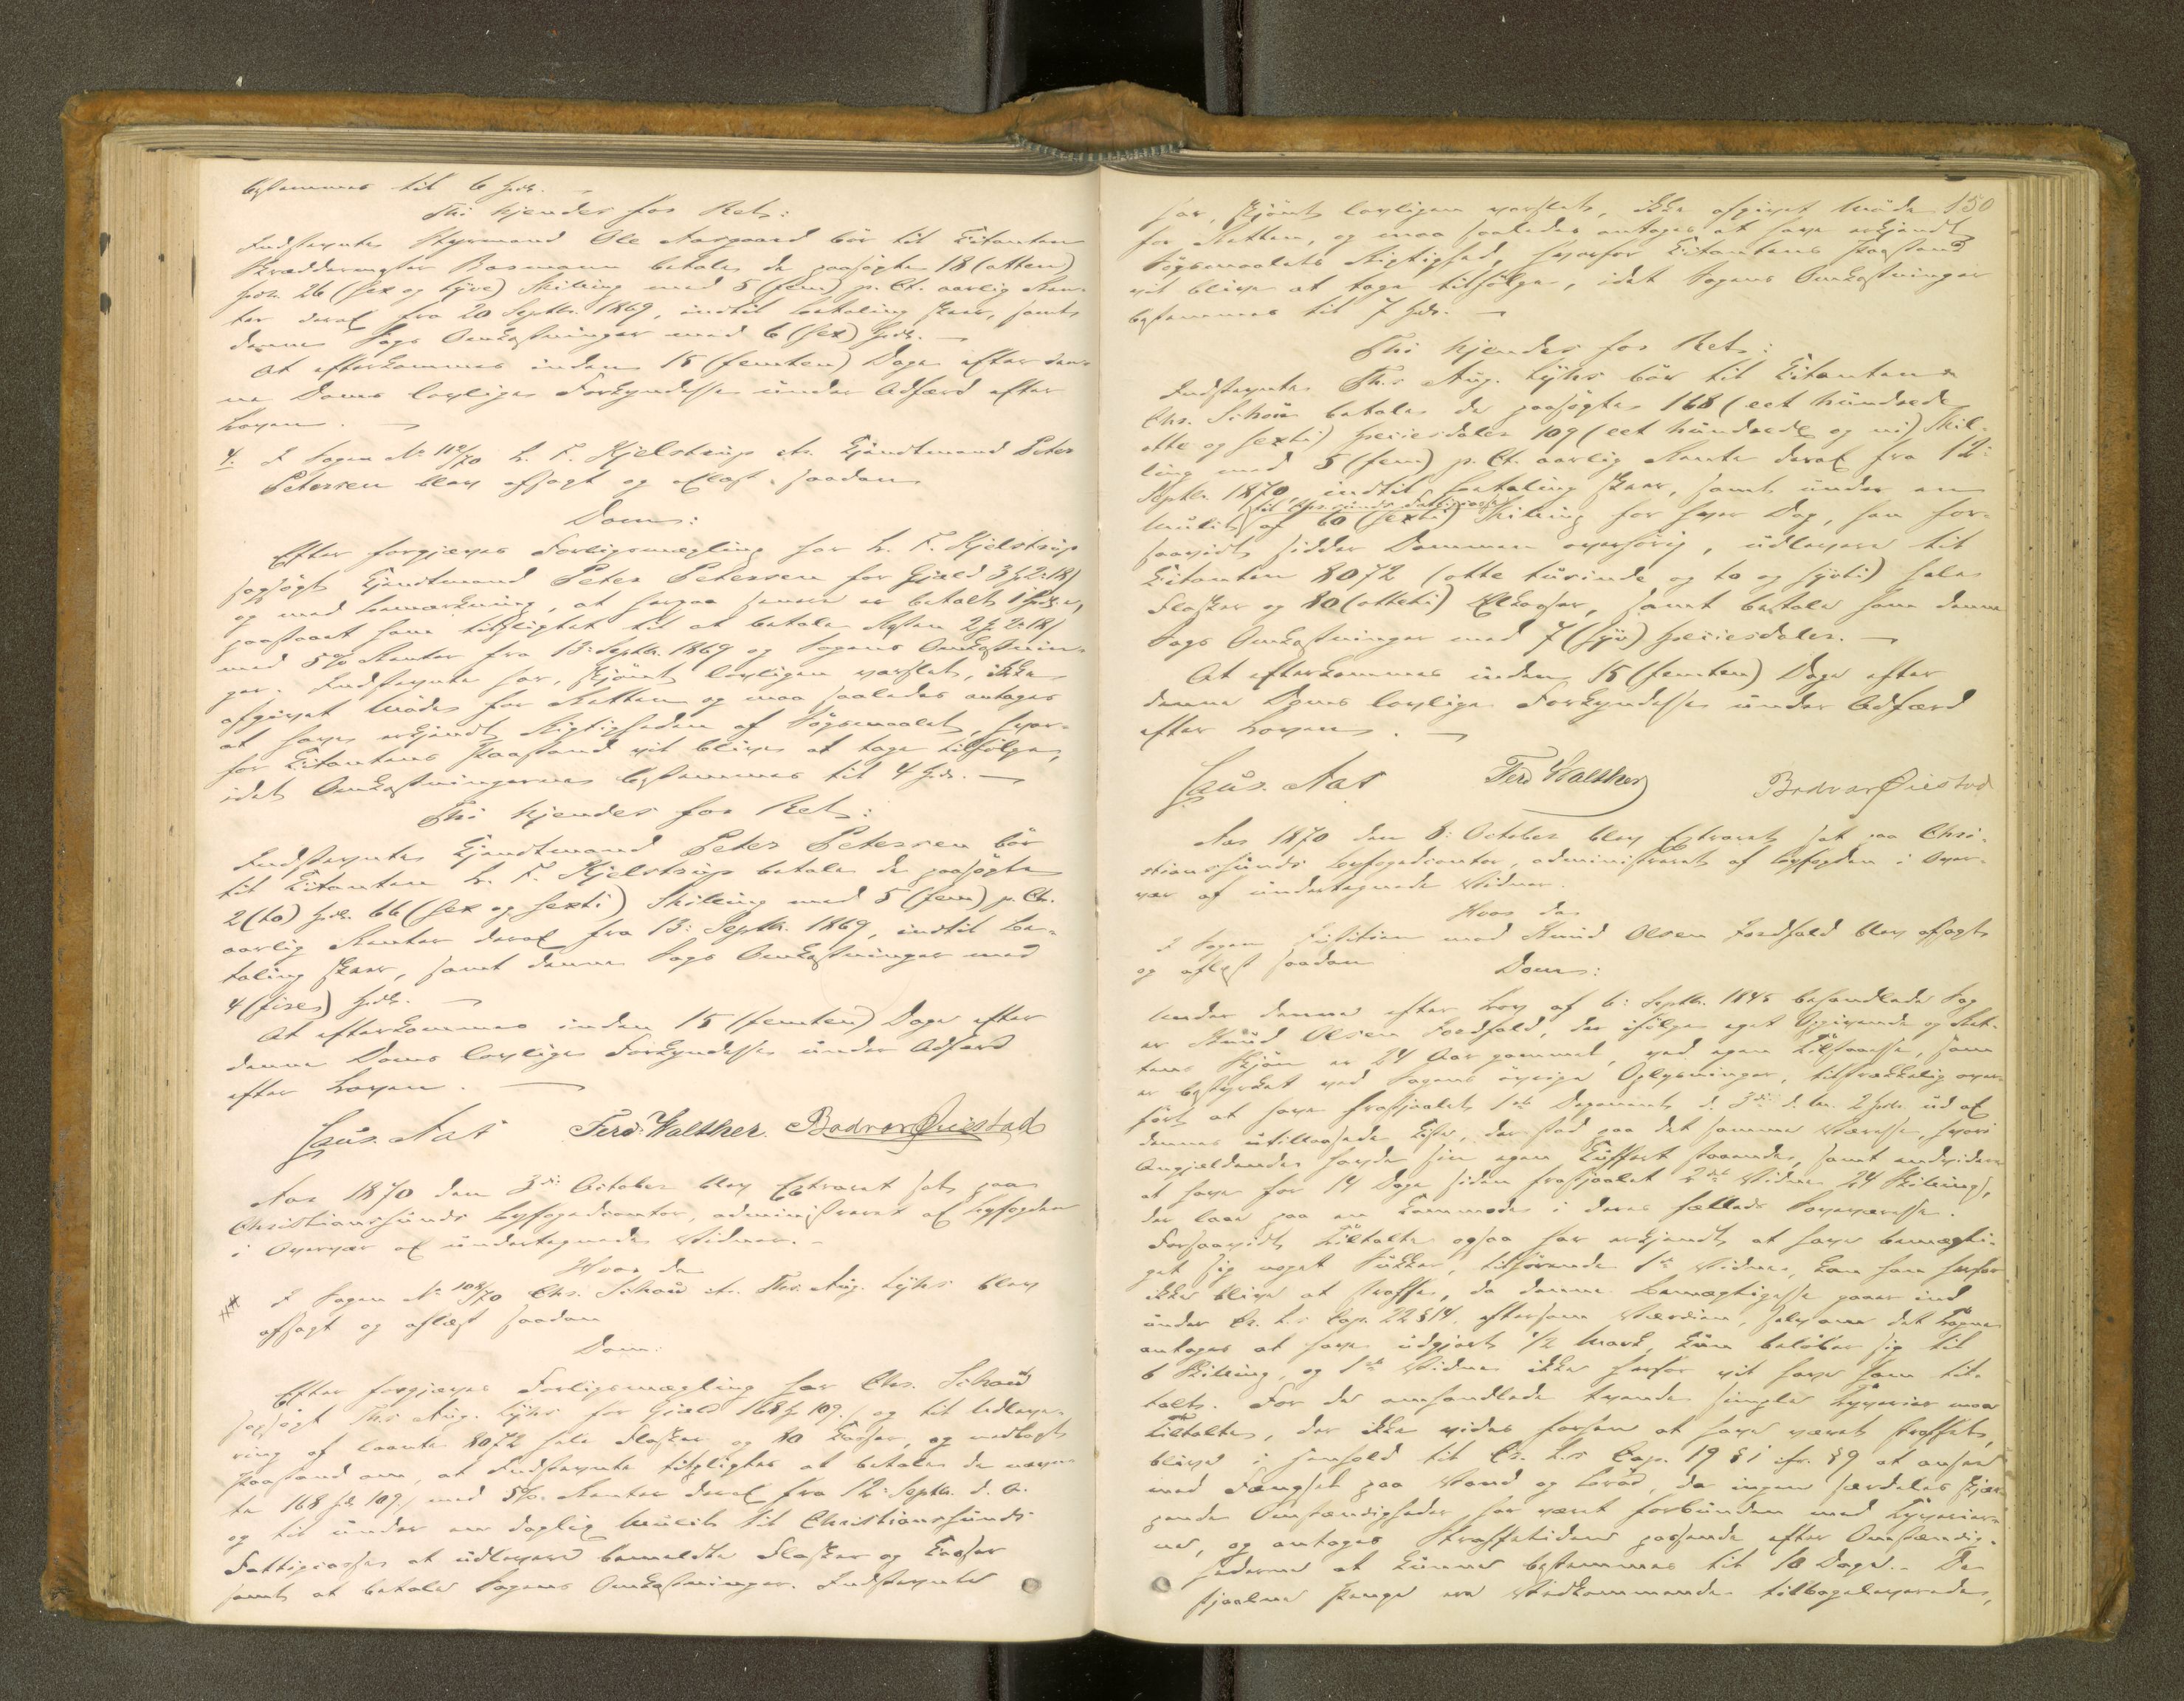 bestemmes til 6 Spd. —
Thi kjendes for Ret:
Indstevnte Styrmand Ole Aasgaard bör til Citanten
Skræddermester Basmann betale de paasögte 18 (atten)
Spdr. 26 (sex og tyve) Skilling med 5 (fem) p. Ct. aarlig Ren-
ter deraf fra 20 Septbr. 1869, indtil Betaling skeer, samt
denne Sags Omkostninger med 6 (sex) Spdlr. —
At efterkommes inden 15 (femten) Dage efter den-
ne Doms lovlige Forkyndelse under Adfærd efter
Loven. —
4. I Sagen No 112/70 L. F. Kjelstrup ctr. Handtmand Peter
Petersen blev afsagt og oplæst saadan
Dom:
Efter forgjæves Forligsmægling har L. F. Kjelstrup
sagsögt Peter Petersen for Gjæld
og med Bemærkning, at herpaa senere er betalt 1 Spd.,
paastaaet ham tilpligtet til at betale Resten
med 5% Renter fra 13: Septbr. 1869 og Sagens Omkostnin-
ger. Indstevnte har, skjönt lovligen varslet, ikke
afgivet Möde for Retten og maa saaledes antages
at have erkjendt Rigtigheden af Sögsmaalet, hvor-
for Citantens Paastand vil blive at tage tilfölge,
idet Omkostningerne bestemmes til 4 Spd. —
Thi kjendes for Ret:
Indstevnte Peter Petersen bör
til Citanten L. F. Kjelstrup betale de paasögte
2 (to) Spdlr. 66 (sex og sexti) Skilling med 5 (fem) p. Ct.
aarlig Renter deraf fra 13: Septbr. 1869, indtil Be-
taling skeer, samt denne Sags Omkostninger med
4 (fire) Spdlr. —
At efterkommes inden 15 (femten) Dage efter
denne Doms lovlige Forkyndelse under Adfærd
efter Loven. —
Ferd. Walther. Bodvar Öiestad
Aar 1870 den 3die October blev Extraret sat paa
Christianssunds Byfogedcontor, administreret af Byfogden
i Overvær af undertegnede Vidner. —
Hvor da
I Sagen No 108/70 Chs. Schou ctr. Ths. Aug. Lyhs blev
afsagt og oplæst saadan
Dom:
Efter forgjæves Forligsmægling har Chs. Schou
sagsögt Ths. Aug. Lyhs for Gjæld 168 Spd. 109 s. og til Udleve-
ring af laante 8072 hele Flasker og 80 Kasser, og nedlagt
Paastand om, at Indstevnte tilpligtes at betale de nævn-
te 168 Spd. 109 s. med 5% Renter deraf fra 12: Septbr. d. A.
og til under en daglig Mulkt til Christianssunds
Fattigcasse at udlevere bemeldte Flasker og Kasser
samt at betale Sagens Omkostninger. Indstevnte
150
har, skjönt lovligen varslet, ikke afgivet Möde
for Retten, og maa saaledes antages at have erkjendt
Sögsmaalets Rigtighed, hvorfor Citantens Paastand
vil blive at tage tilfölge, idet Sagens Omkostninger
bestemmes til 7 Spd. —
Thi kjendes for Ret:
Indstevnte Ths. Aug. Lyhs bör til Citanten
Chs. Schou betale de paasögte 168 (eet hundrede
otte og sexti) Speciesdaler 109 (eet hundrede og ni) Skil-
ling med 5 (fem) p. Ct. aarlig Rente deraf fra 12:
Septbr. 1870, indtil Betaling skeer, samt under en
til Chr.sunds Fattigcasse
Mulkt af 60 (sexti) Skilling for hver Dag, han for-
saavidt sidder Dommen overhörig, udlevere til
Citanten 8072 (otte tusinde og to og sytti) hele
Flasker og 80 (otteti) Kasser, samt betale ham denne
Sags Omkostninger med 7 (syv) Speciesdaler. —
At efterkommes inden 15 (femten) Dage efter
denne Doms lovlige Forkyndelse under Adfærd
efter Loven. —
Ferd Walther Bodvar Öiestad
Aar 1870 den 8: October blev Extraret sat paa Chri-
stianssunds Byfogedcontor, administreret af Byfogden i Over-
vær af undertegnede Vidner.
Hvor da
I Sagen Justitien mod Knud Olsen blev afsagt
og oplæst saadan Dom:
Under denne efter Lov af 6: Septbr. 1845 behandlede Sag
er Knud Olsen, der ifölge eget Opgivende og Ret-
tens Skjön er 24 Aar gammel, ved egen Tilstaaelse, som
er bestyrket ved Sagens övrige Oplysninger, tilstrækkelig over-
fört at have frastjaalet 1ste Deponent d. 3die d. M. 2 Spdr. ud af
dennes utillaasede Kiste, der stod paa det samme Værelse, hvori
Angjældende havde sin egen Kuffert staaende, samt endvidere
at have for 14 Dage siden frastjaalet 2det Vidne 24 Skilling,
der laae paa en Kommode i deres fælleds Soveværelse.
Forsaavidt Tiltalte ogsaa har erkjendt at have bemægti-
get sig noget Sukker, tilhörende 1ste Vidne, kan han herfor
ikke blive at straffe, da denne Bemægtigelse gaar ind
under Cr. L.s Cap. 22 § 14, eftersom Værdien, selv om det Tagne
antages at have udgjort 1/2 Mark, kun belöber sig til
6 Skilling, og 1ste Vidne ikke herfor vil have ham til-
talt. For de omhandlede tvende simple Tyverier maa
Tiltalte, der ikke vides forhen at have været straffet,
blive i Henhold til Cr. L.s Cap. 19 § 1 cfr. § 9 at ansee
med Fængsel paa Vand og Bröd, da ingen særdeles skjær-
pende Omstændigheder har været forbunden med Tyverier-
ne, og antages Straffetiden passende efter Omstændig-
hederne at kunne bestemmes til 10 Dage. — De
stjaalne Penge ere Vedkommende tilbageleverede,